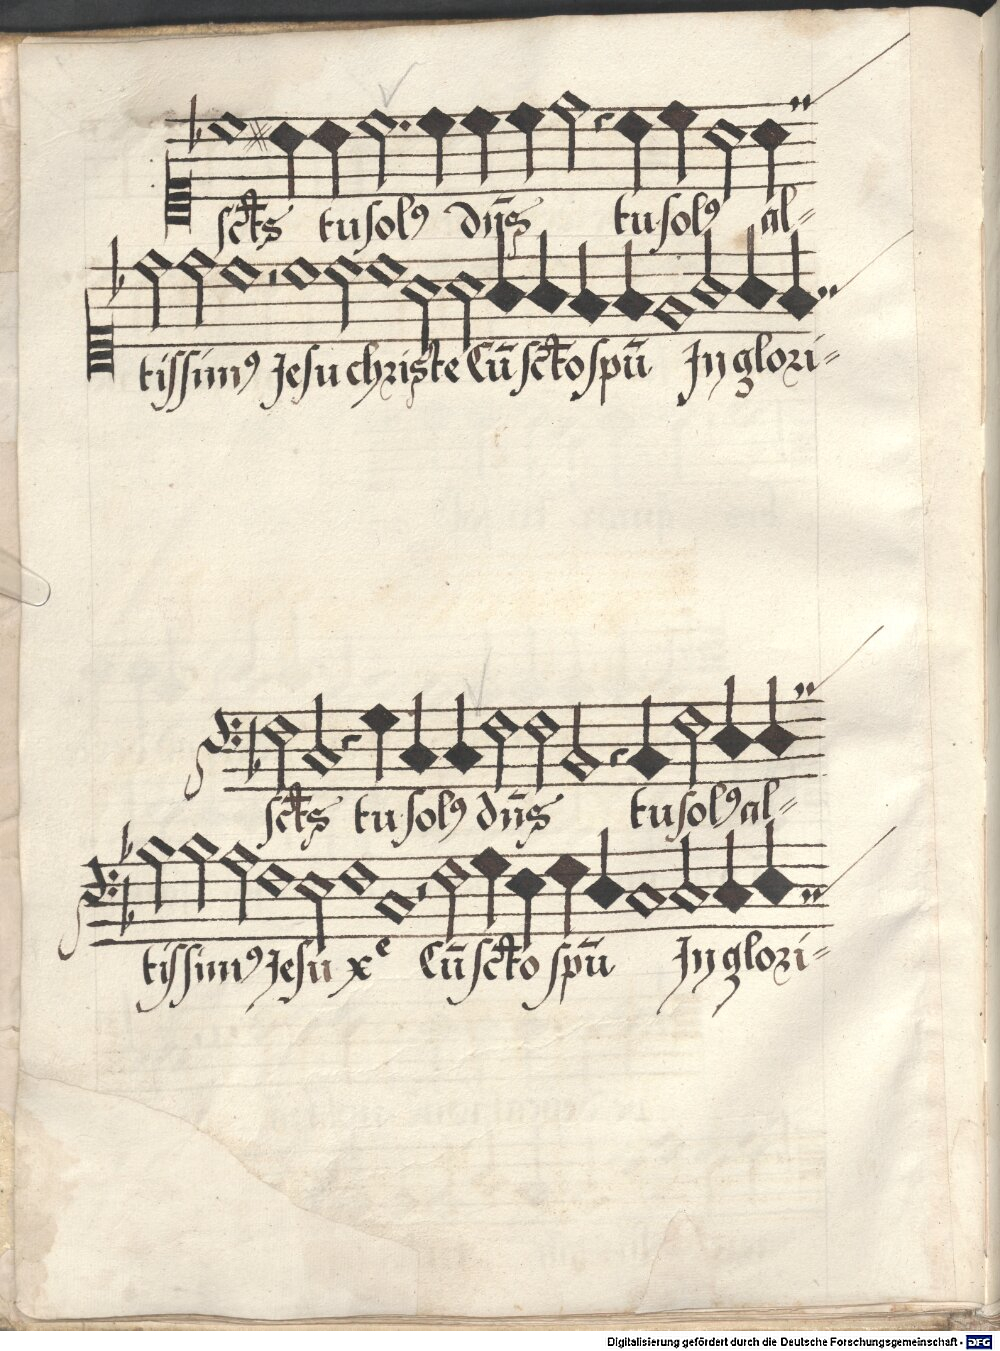 sct̄s tu solꝰ dn̄s tu solꝰ al=
tissimꝰ Jesu christe Cū sct̄o spū In glori=
sct̄s tu solꝰ dn̄s tu solꝰ al=
tissimꝰ Jesu xᵉ Cū sct̄o spū In glori=
Digitalisierung gefördert durch die Deutsche Forschungsgemeinschaft - DFG